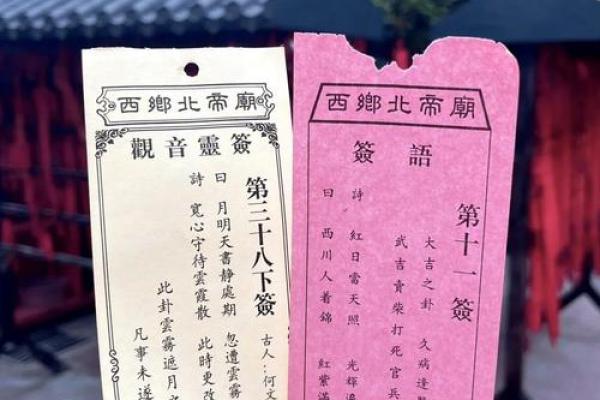 西鄉北帝廟
觀音靈簽
第三十八下簽
古人：何文
曰 月明天書靜處期 忽遭雲霧
詩 寬心守待雲霞散 此時更改
此卦雲霧遮月
凡事未遂
西鄉北帝廟
簽語
第十一簽
大吉之卦 久病逢
武吉賣柴打死官兵
詩 紅日當天照 光輝
曰 西川人着錦 紅紫滿